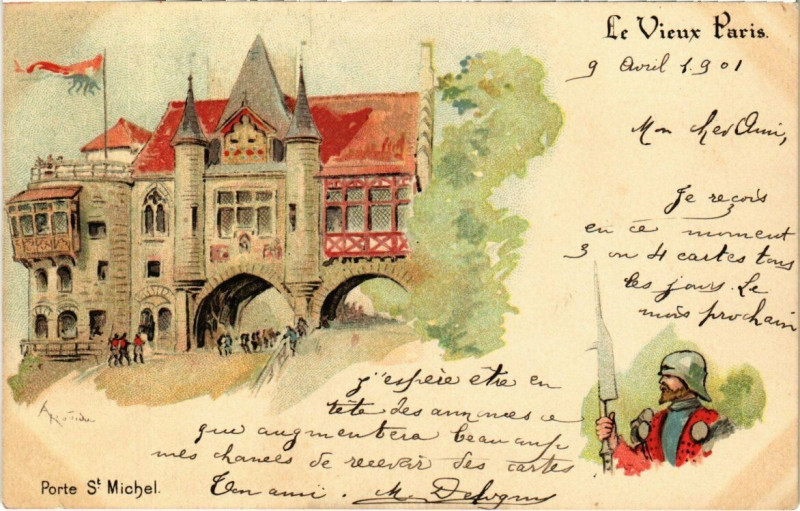 Le Vieux Paris.
9 Avril 1901
Mon cher Ami,
Je reçois
en ce moment
3 ou 4 cartes tous
les jours. Le
mois prochain
j'espère être en
tête des annonces ce
que augmentera beaucoup
mes chances de recevoir des cartes
Ton ami. M.
A Robida
Porte St Michel.